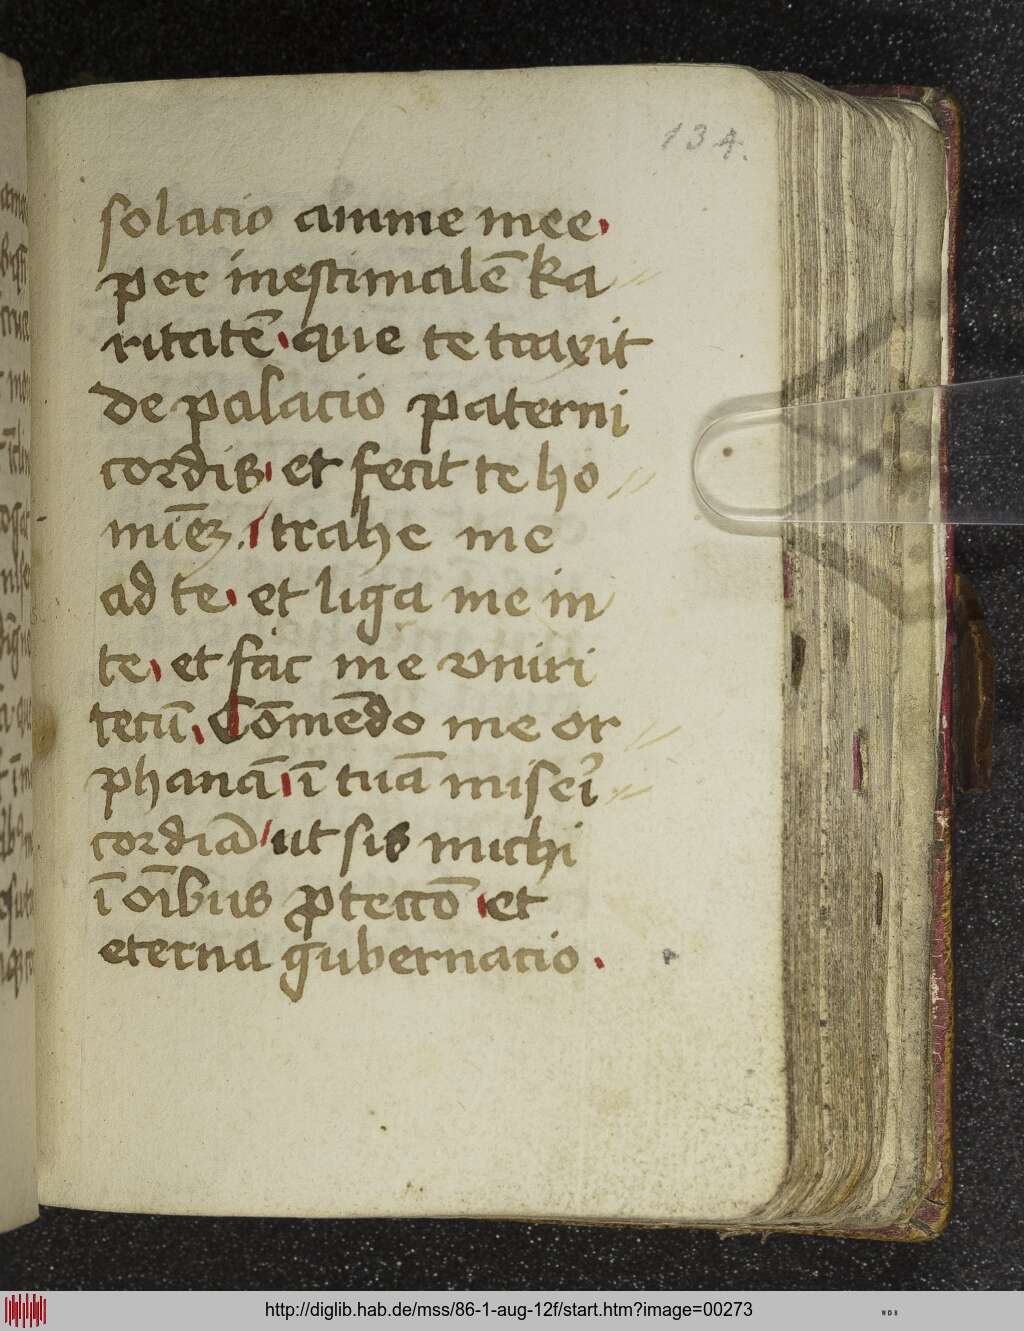 134.
solacio anime mee.
per inestimalē ka
ritatē. que te traxit
de palacio paterni
cordis. et fecit te ho
mīeȝ. trahe me
ad te. et liga me in
te. et fac me vniri
tecū. Cōmēdo me or
phanā. ī tuā miseri
cordiā ut sis michi
ī oībus ꝓteccō. et
eterna gubernacio.
http://diglib.hab.de/mss/86-1-aug-12f/start.htm?image=00273